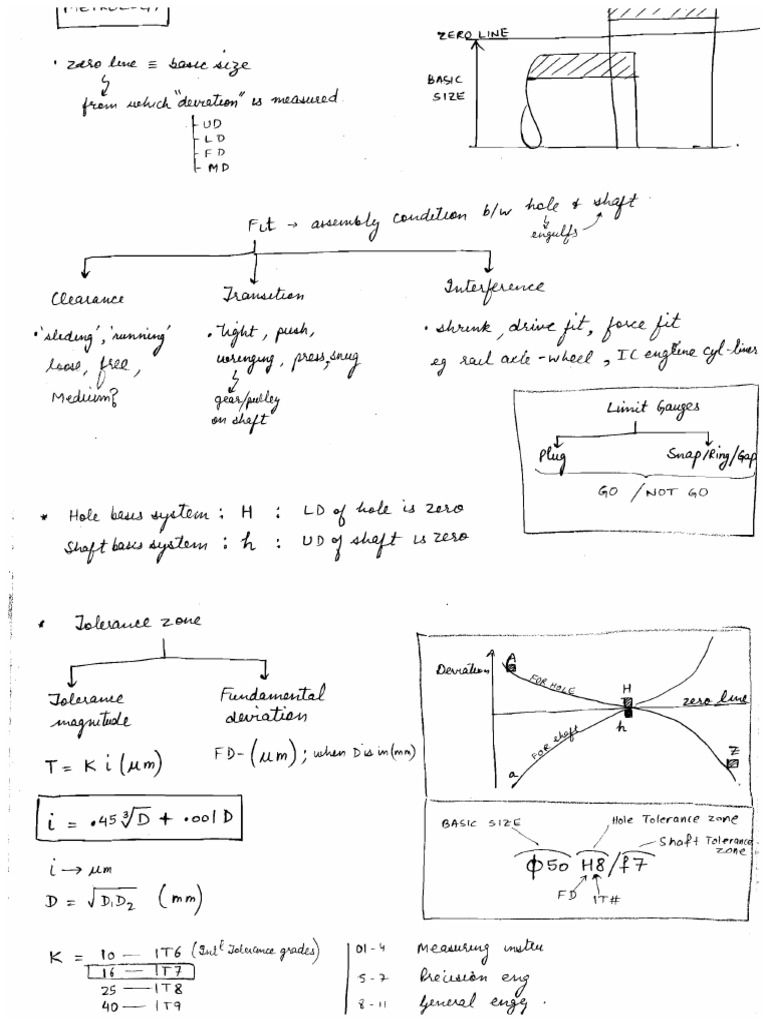 METROLOGY
ZERO LINE
• zero line ≡ basic size
BASIC
SIZE
from which "deviation" is measured
UD
LD
FD
MD
Fit → assembly condition b/w hole & shaft
engulfs
Clearance
Transition
Interference
• 'sliding', 'running'
loose, free,
Medium?
• Tight, push,
wringing, press, snug
gear/pulley
on shaft
• shrink, drive fit, force fit
eg rail axle-wheel, IC engine cyl-liner
Limit Gauges
Plug
Snap/Ring/Gap
GO / NOT GO
* Hole basis system : H : LD of hole is zero
Shaft basis system : h : UD of shaft is zero
* Tolerance zone
Tolerance
magnitude
Fundamental
deviation
T = K i (μm)
FD-(μm) ; when D is in (mm)
i = .45 ∛D + .001 D
i → μm
D = √D₁D₂ (mm)
K = 10 — IT6 (Intl Tolerance grades)
16 — IT7
25 — IT8
40 — IT9
01-4 Measuring instru
5-7 Precision eng
8-11 General engg.
Deviation
A
FOR HOLE
H
zero line
h
FOR shaft
a
Z
BASIC SIZE
Hole Tolerance zone
Shaft Tolerance
zone
ϕ50 H8/f7
FD
IT#